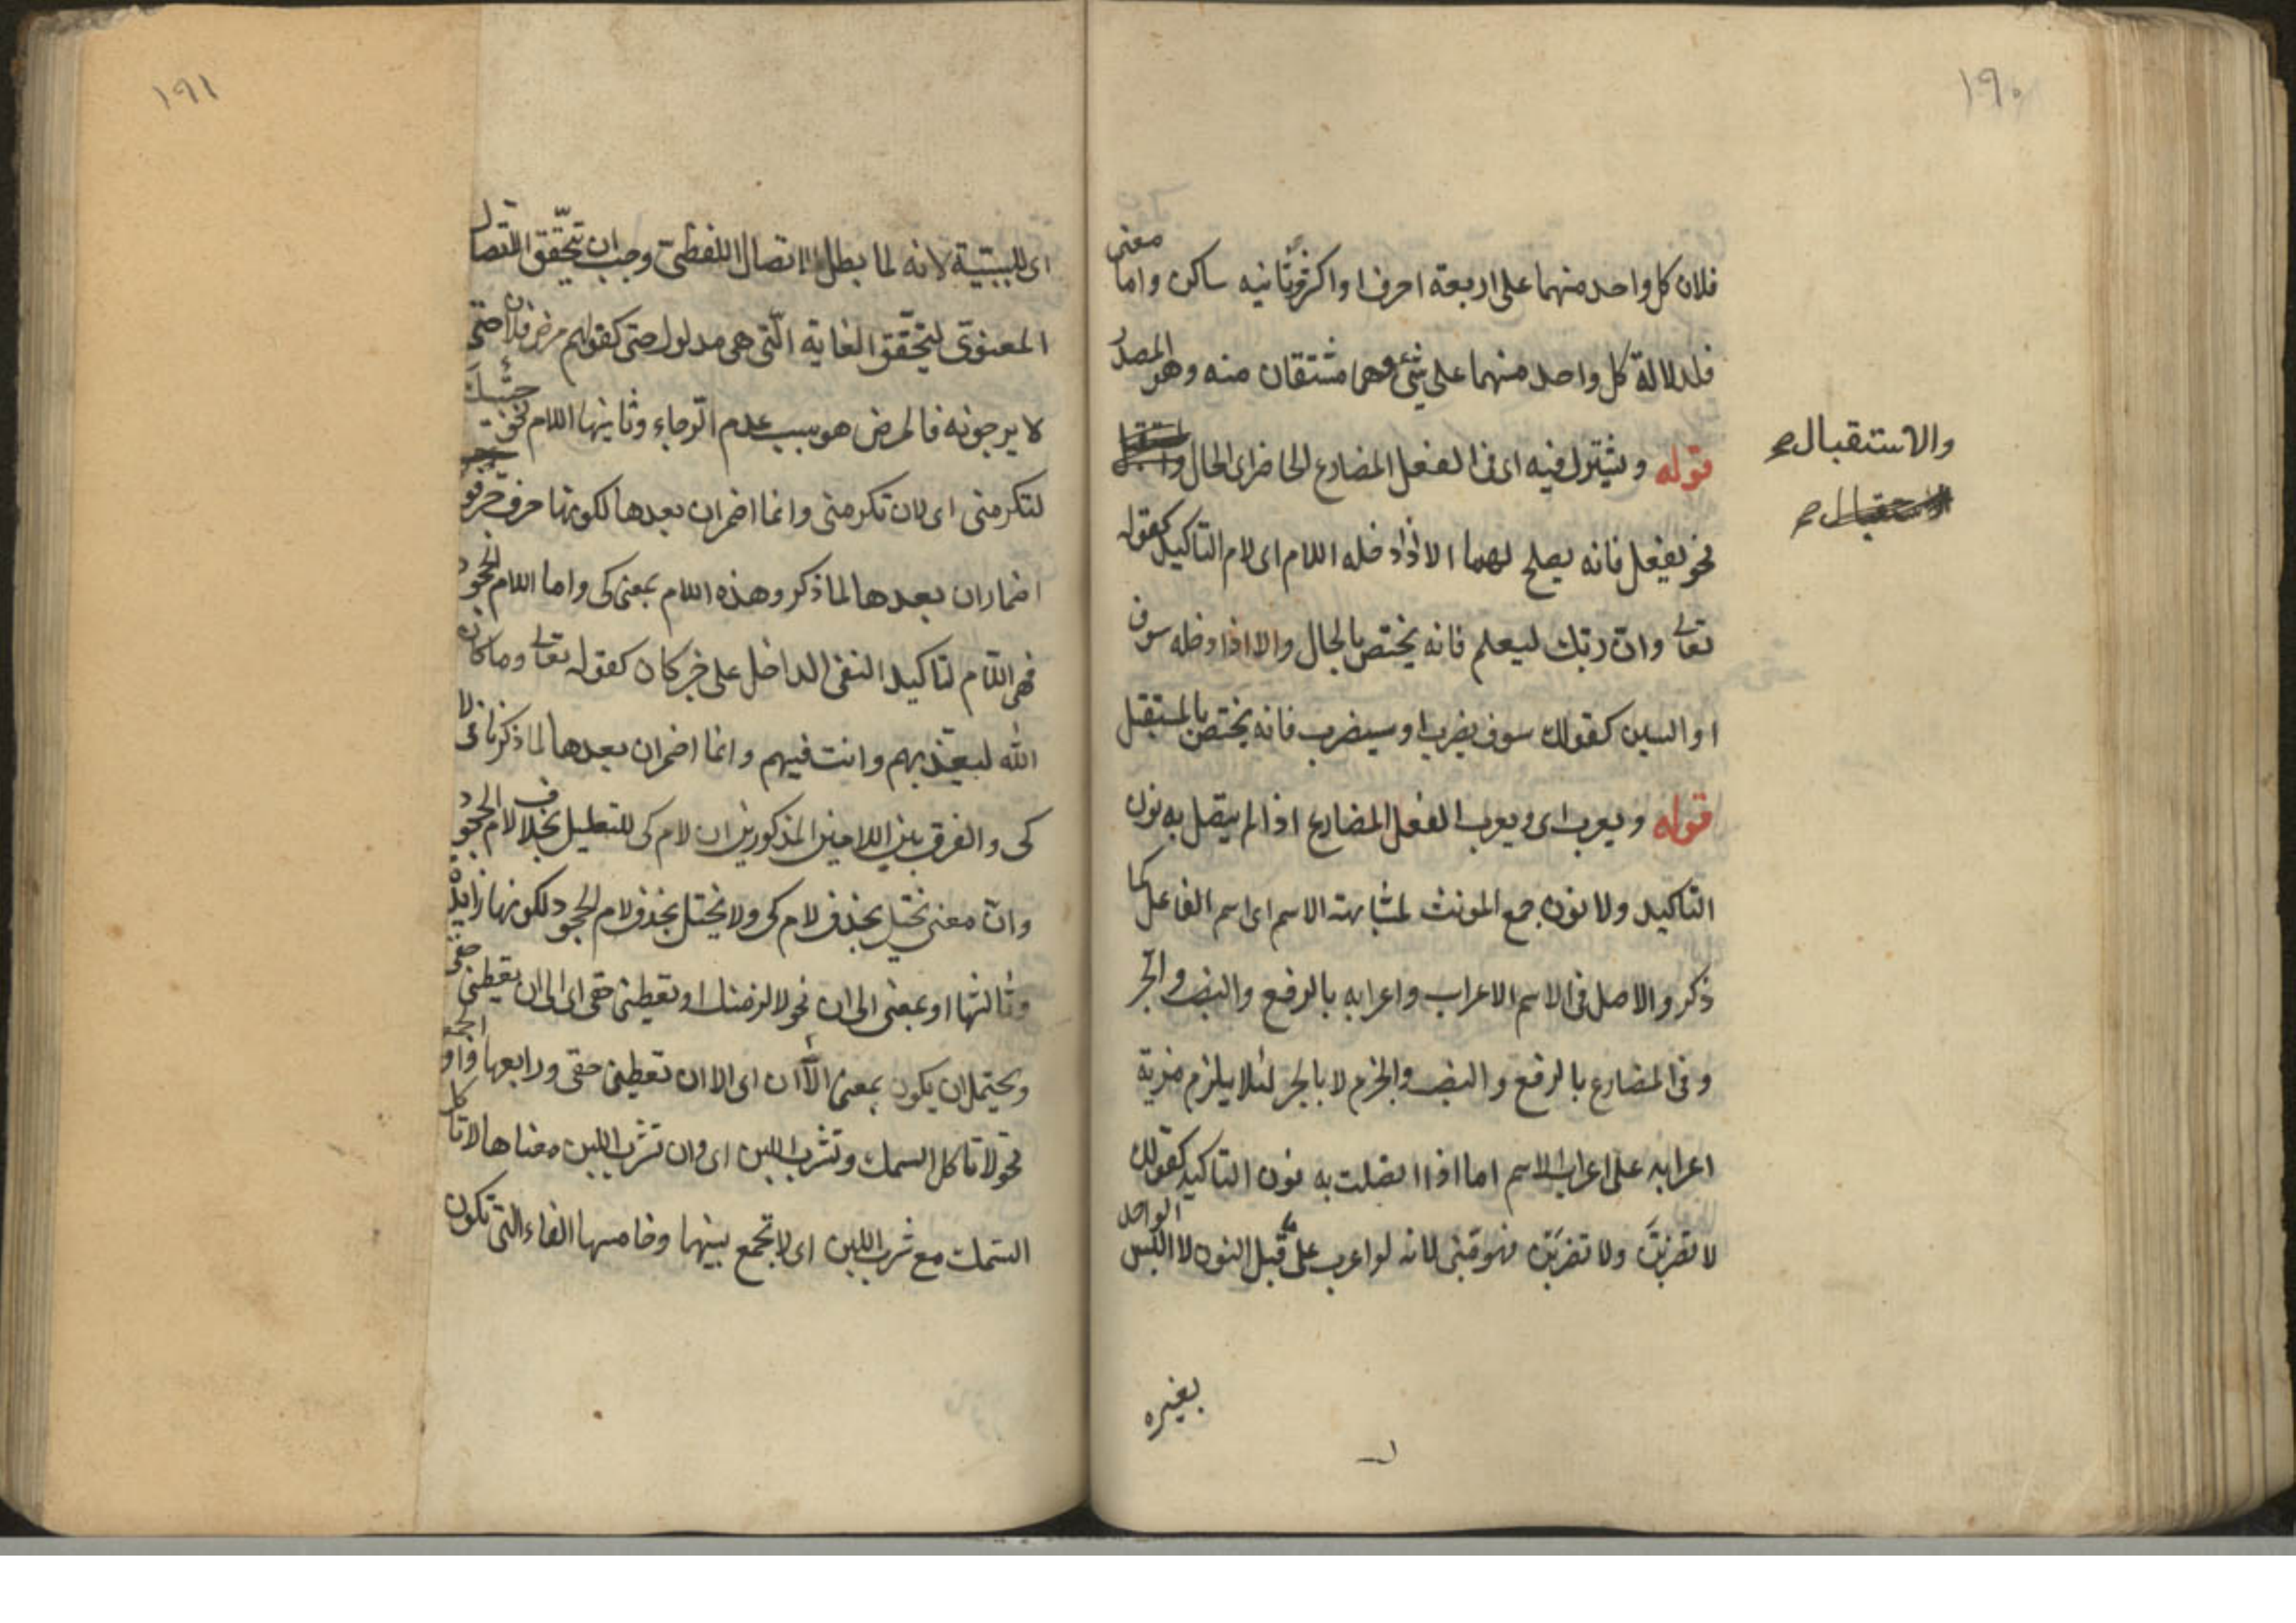 ١٩٠
فلان كل واحد منهما على اربعة احرف او اكثر وثانيه ساكن واما معنى
فلدلالة كل واحد منهما على شئ وهما مشتقان منه وهو المصدر
قوله ويشترك فيه اى فى الفعل المضارع الحاضر اى الحال
والاستقبال صح
نحو يفعل فانه يصلح لهما الا اذا دخله اللام اى لام التاكيد كقوله
تعالى وان ربك ليعلم فانه يختص بالحال والا اذا دخله سوف
او السين كقولك سوف يضرب او سيضرب فانه يختص بالمستقبل
قوله ويعرب اى ويعرب الفعل المضارع اذا لم يتصل به نون
التاكيد ولا نون جمع المونث لمشابهته الاسم اى اسم الفاعل كما
ذكر والاصل فى الاسم الاعراب واعرابه بالرفع والنصب والجر
وفى المضارع بالرفع والنصب والجزم لا بالجر لئلا يلزم مزية
اعرابه على اعراب الاسم اما اذا اتصلت به نون التاكيد كقولك
لا تضربنّ ولا تضربن فهو مبنى لانه لو اعرب على قبل النون لالتبس الواحد
بغيره
١٩١
اى للسببية لانه لما بطل الاتصال اللفظى وجب ان يتحقق الاتصال
المعنوى ليتحقق الغاية التى هى مدلول حتى كقولهم مرض فلان حتى
لا يرجونه فالمرض هو سبب عدم الرجاء وثانيها اللام نحو جئتك
لتكرمنى اى لان تكرمنى وانما اضمر ان بعدها لكونها حرف جر
اضمار ان بعدها لما ذكر وهذه اللام بمعنى كى واما اللام الجحود
فهى اللام لتاكيد النفى الداخل على خبر كان كقوله تعالى وما كان
الله ليعذبهم وانت فيهم وانما اضمر ان بعدها لما ذكرنا فى لا
كى والفرق بين اللامين المذكورين ان لام كى للتعليل بخلاف لام الجحود
وان معنى يختل بحذف لام كى ولا يختل بحذف لام الجحود لكونها زايدة
وثالثها او بمعنى الى ان نحو لالزمنك او تعطينى حقى اى الى ان تعطينى حقى
ويحتمل ان يكون بمعنى الا ان اى الا ان تعطينى حقى ورابعها واو الجمع
نحو لا تاكل السمك وتشرب اللبن اى وان تشرب اللبن معناها لا تاكل
السمك مع شرب اللبن اى لا تجمع بينهما وخامسها الفاء التى تكون